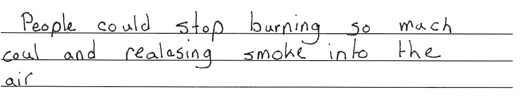 People could stop burning so much
coul and realasing smoke into the
air